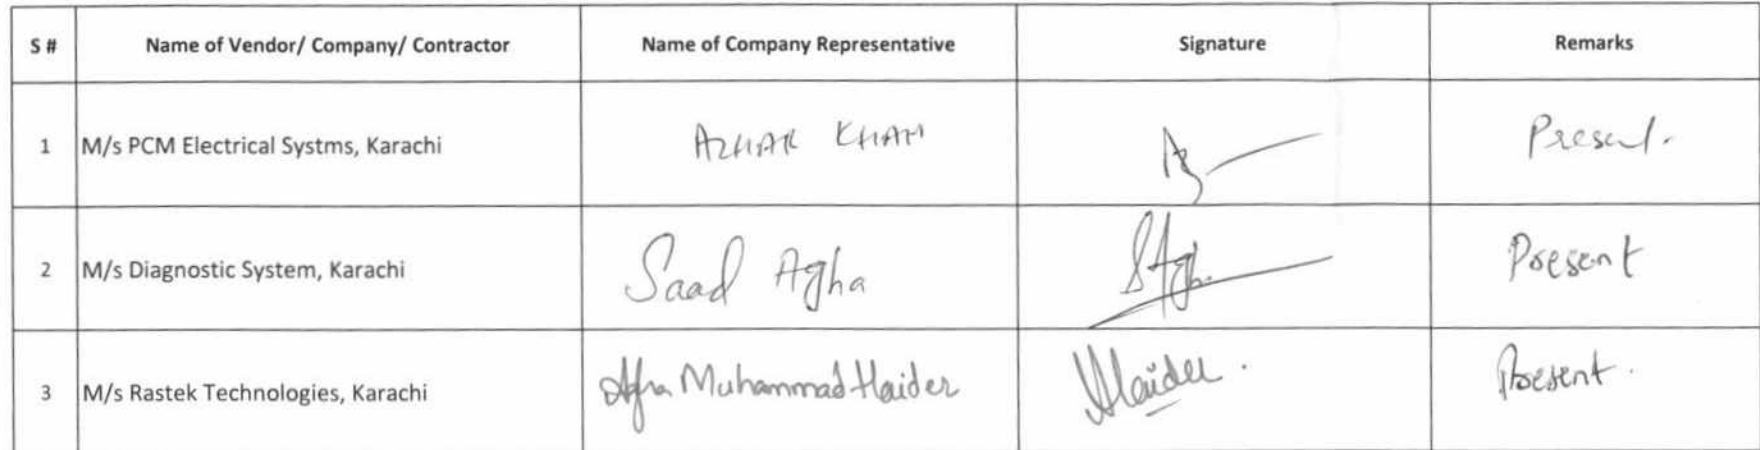 S # Name of Vendor/ Company/ Contractor Name of Company Representative Signature Remarks
1 M/s PCM Electrical Systms, Karachi AZHAR KHAN Present.
2 M/s Diagnostic System, Karachi Saad Agha Present
3 M/s Rastek Technologies, Karachi Muhammad Haider Haider. Present.